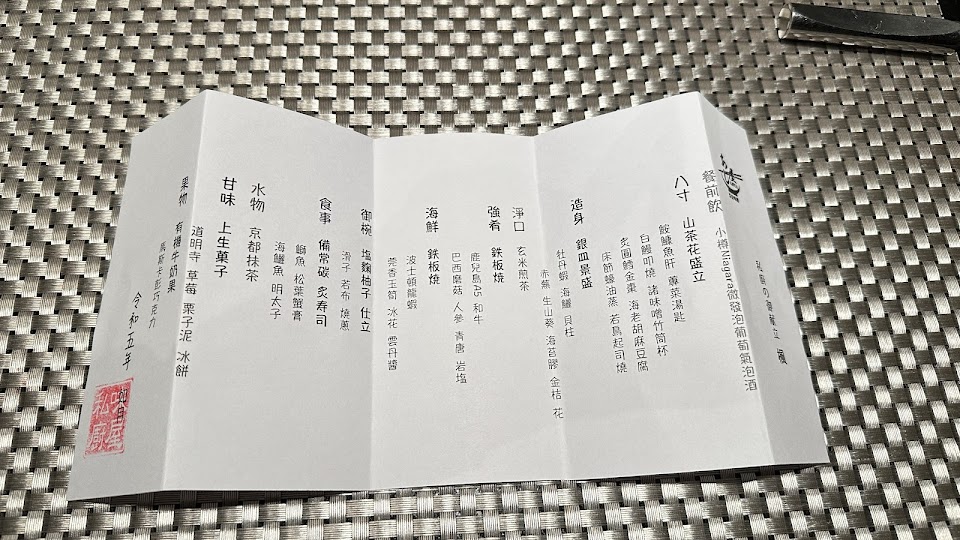 餐前飲 小樽Niagara微發泡葡萄氣泡酒
八寸 山茶花盛立
鮟鱇魚肝 蓴菜湯匙
白鰻叩燒 諸味噌竹筒杯
炙圓鱈金棗 海老胡麻豆腐
床節蠔油蒸 若鳥起司燒
造身 銀皿景盛
牡丹蝦 海鱺 貝柱
赤蕪 生山葵 海苔膠 金桔 花
淨口 玄米煎茶
強肴 鉄板燒
鹿兒島A5 和牛
巴西磨菇 人參 青唐 岩塩
海鮮 鉄板燒
波士頓龍蝦
莞香玉筍 冰花 雲丹醬
御椀 塩麴柚子 仕立
滑子 若布 燒蔥
食事 備常碳 炙寿司
鰤魚 松葉蟹膏
海鱺魚 明太子
水物 京都抹茶
甘味 上生菓子
道明寺 草莓 栗子泥 冰餅
果物 有機牛奶果
馬斯卡彭巧克力
令和五年
味屋私廚